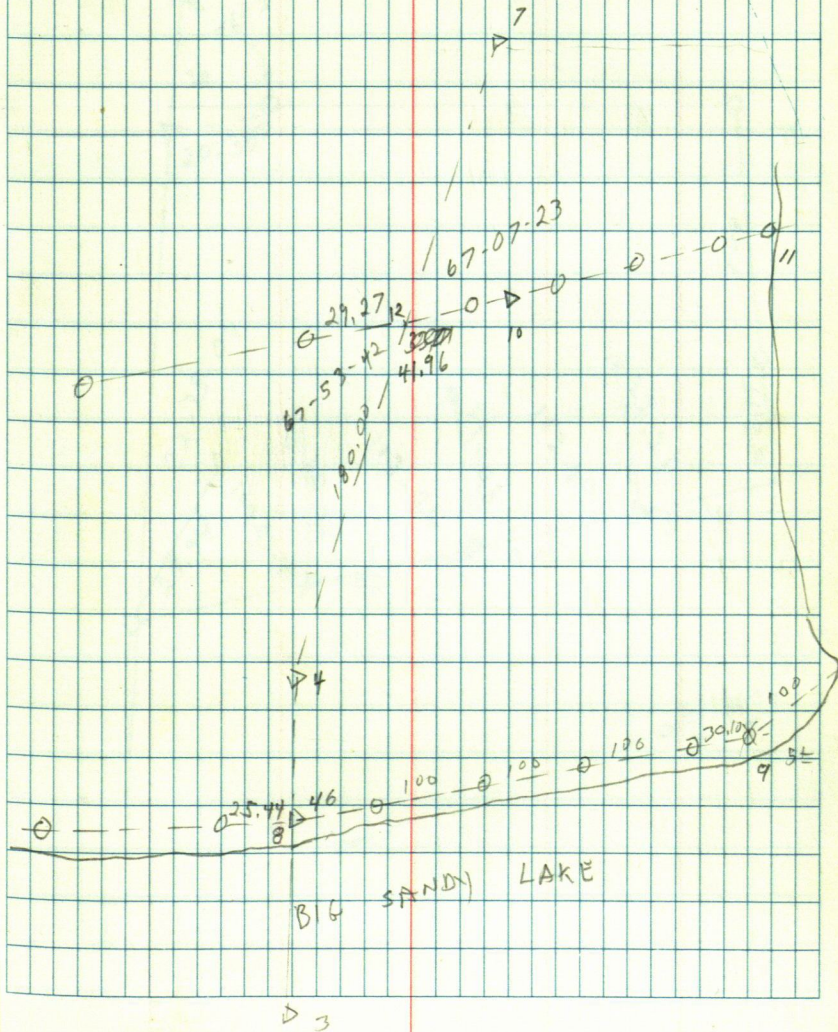 7
67-07-23
11
29.27
12
10
67-53-42
41.96
180.00
4
100
30.10
100
100
100
9
5±
25.44
46
8
BIG SANDY LAKE
3